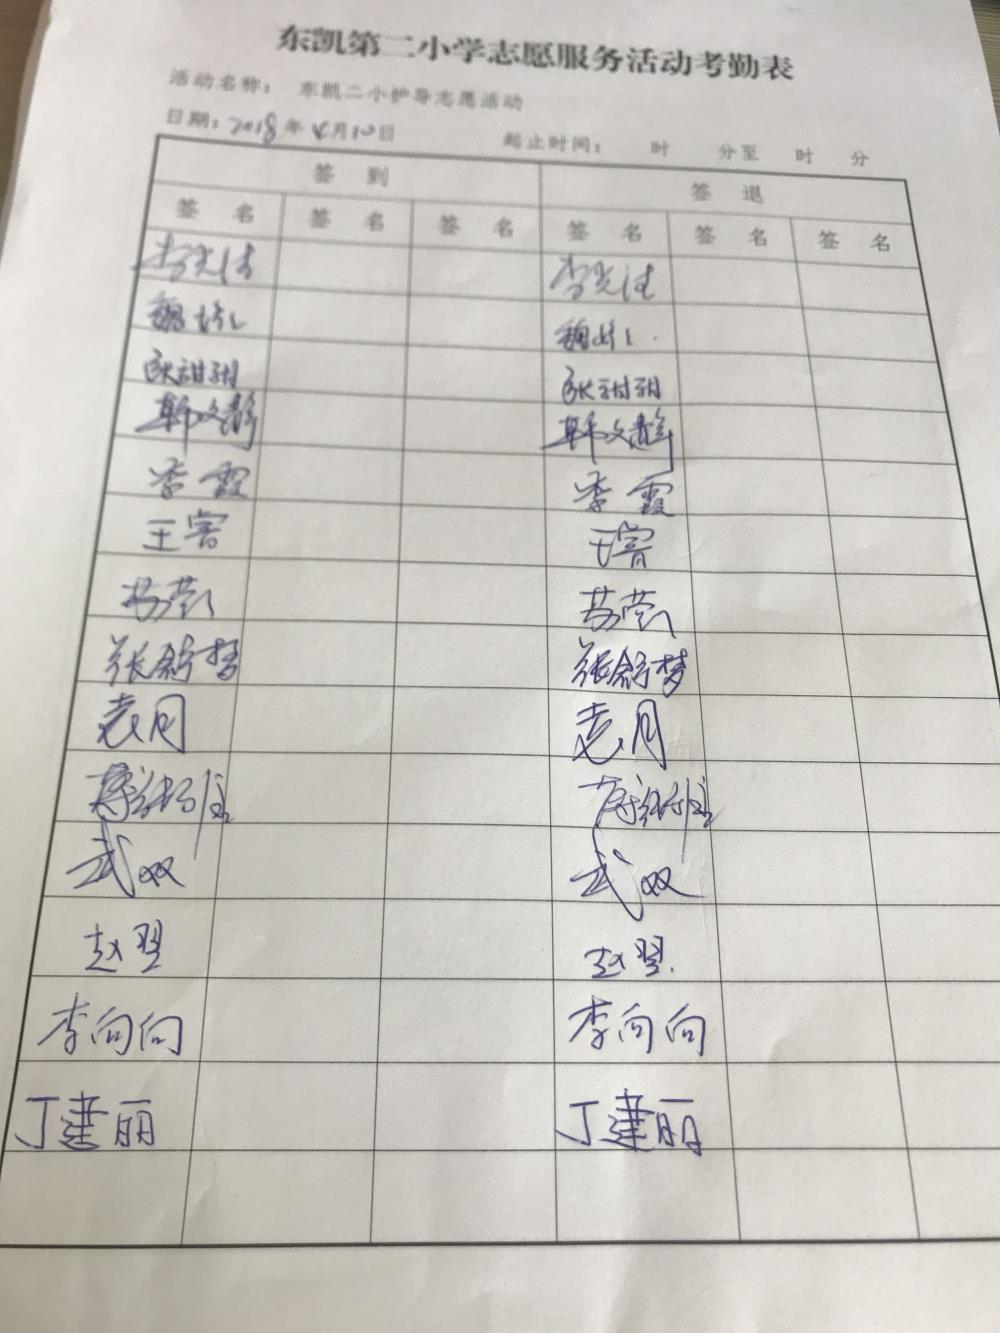 东凯第二小学志愿服务活动考勤表
活动名称： 东凯二小护导志愿活动
日期：2018年4月10日 起止时间： 时 分至 时 分
签 到 签 退
签 名 签 名 签 名 签 名 签 名 签 名
魏婷 魏婷
张甜甜 张甜甜
韩文静 韩文静
李霞 李霞
王
张舒梦 张舒梦
袁月 袁月
武双 武双
赵翌 赵翌
李向向 李向向
丁建丽 丁建丽